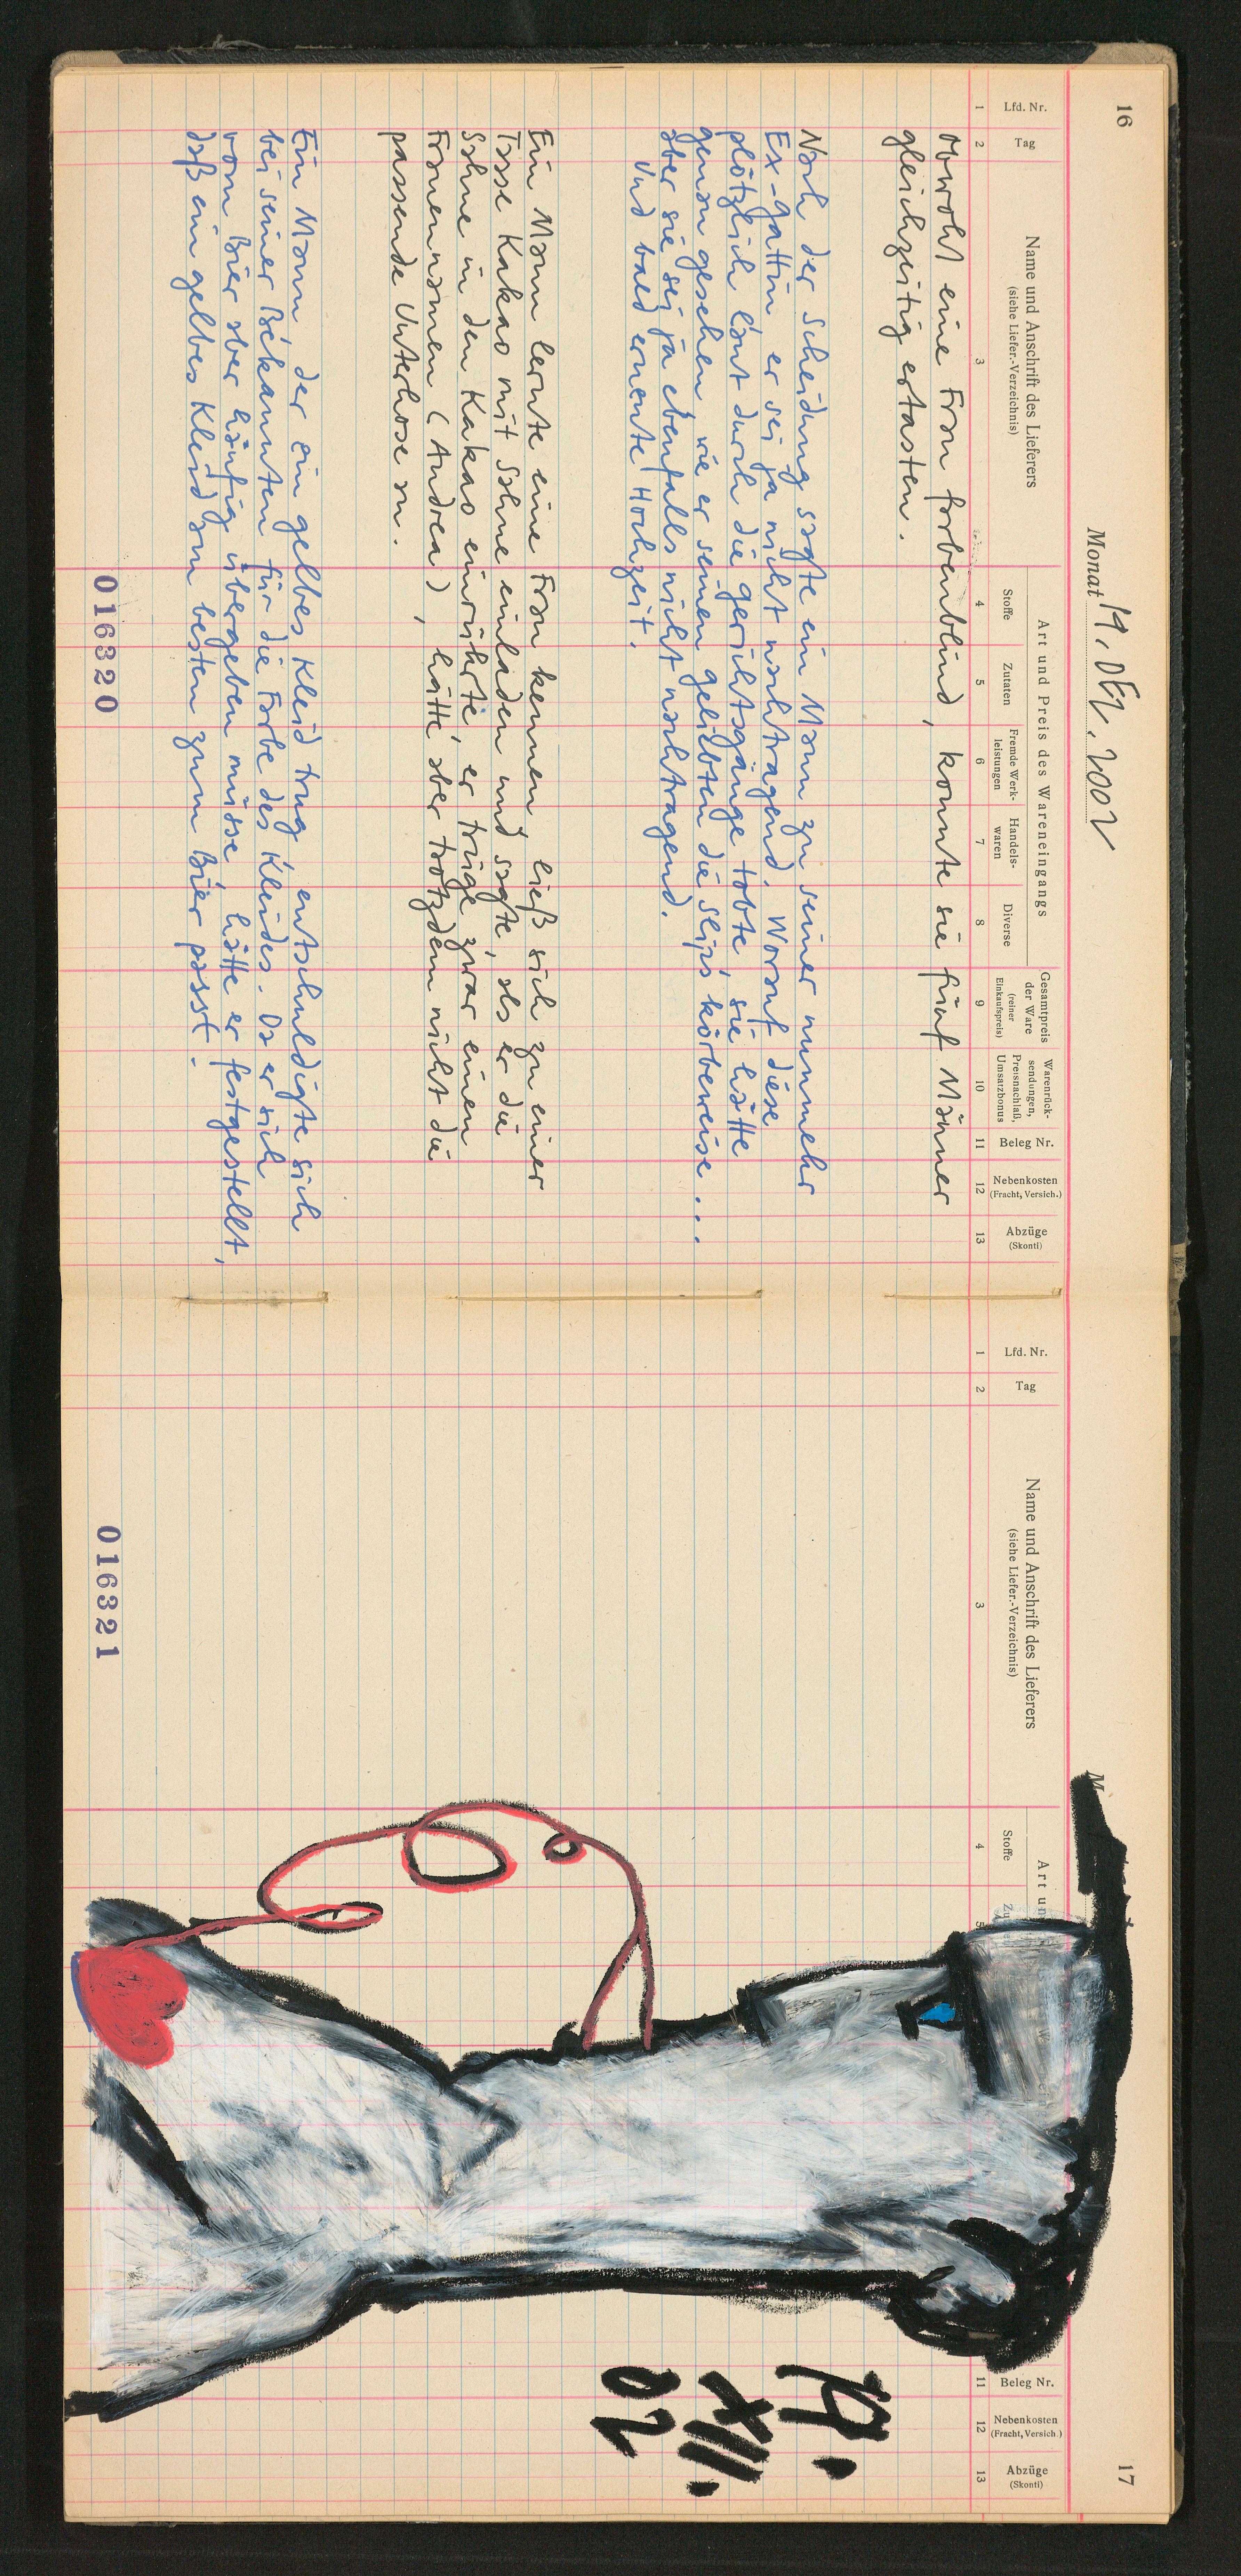 16
Monat 19. Dez. 2002
Lfd. Nr.
Tag
Name und Anschrift des Lieferers
(siehe Liefer.-Verzeichnis)
Art und Preis des Wareneingangs
Stoffe
Zutaten
Fremde Werk-
leistungen
Handels-
waren
Diverse
Gesamtpreis
der Ware
(reiner
Einkaufspreis)
Warenrück-
sendungen,
Preisnachlaß,
Umsatzbonus
Beleg Nr.
Nebenkosten
(Fracht, Versich.)
Abzüge
(Skonti)
1 2 3 4 5 6 7 8 9 10 11 12 13
Obwohl eine Frau farbenblind, konnte sie fünf Männer
gleichzeitig ertasten.
Nach der Scheidung sagte ein Mann zu seiner nunmehr
Ex-Gattin er sei ja nicht nachtragend. Worauf diese
plötzlich laut durch die Gerichtsgänge tobte, sie hätte
genau gesehen wie er seinen geliebten die Slips körbeweise...
aber sie sei ja ebenfalls nicht nachtragend.
Und bald erneute Hochzeit.
Ein Mann lernte eine Frau kennen, ließ sich zu einer
Tasse Kakao mit Sahne einladen und sagte, als er die
Sahne in den Kakao einrührte, er trüge zwar einen
Frauennamen (Andrea), hätte aber trotzdem nicht die
passende Unterhose an.
Ein Mann, der ein gelbes Kleid trug, entschuldigte sich
bei seiner Bekannten für die Farbe des Kleides. Da er sich
vom Bier aber häufig übergeben müsse, hätte er festgestellt,
daß ein gelbes Kleid am besten zum Bier passt.
016320
17
M
Lfd. Nr.
Tag
Name und Anschrift des Lieferers
(siehe Liefer.-Verzeichnis)
Art un
Stoffe
Zu
Beleg Nr.
Nebenkosten
(Fracht, Versich.)
Abzüge
(Skonti)
1 2 3 4 5 11 12 13
19.
XII.
20
016321